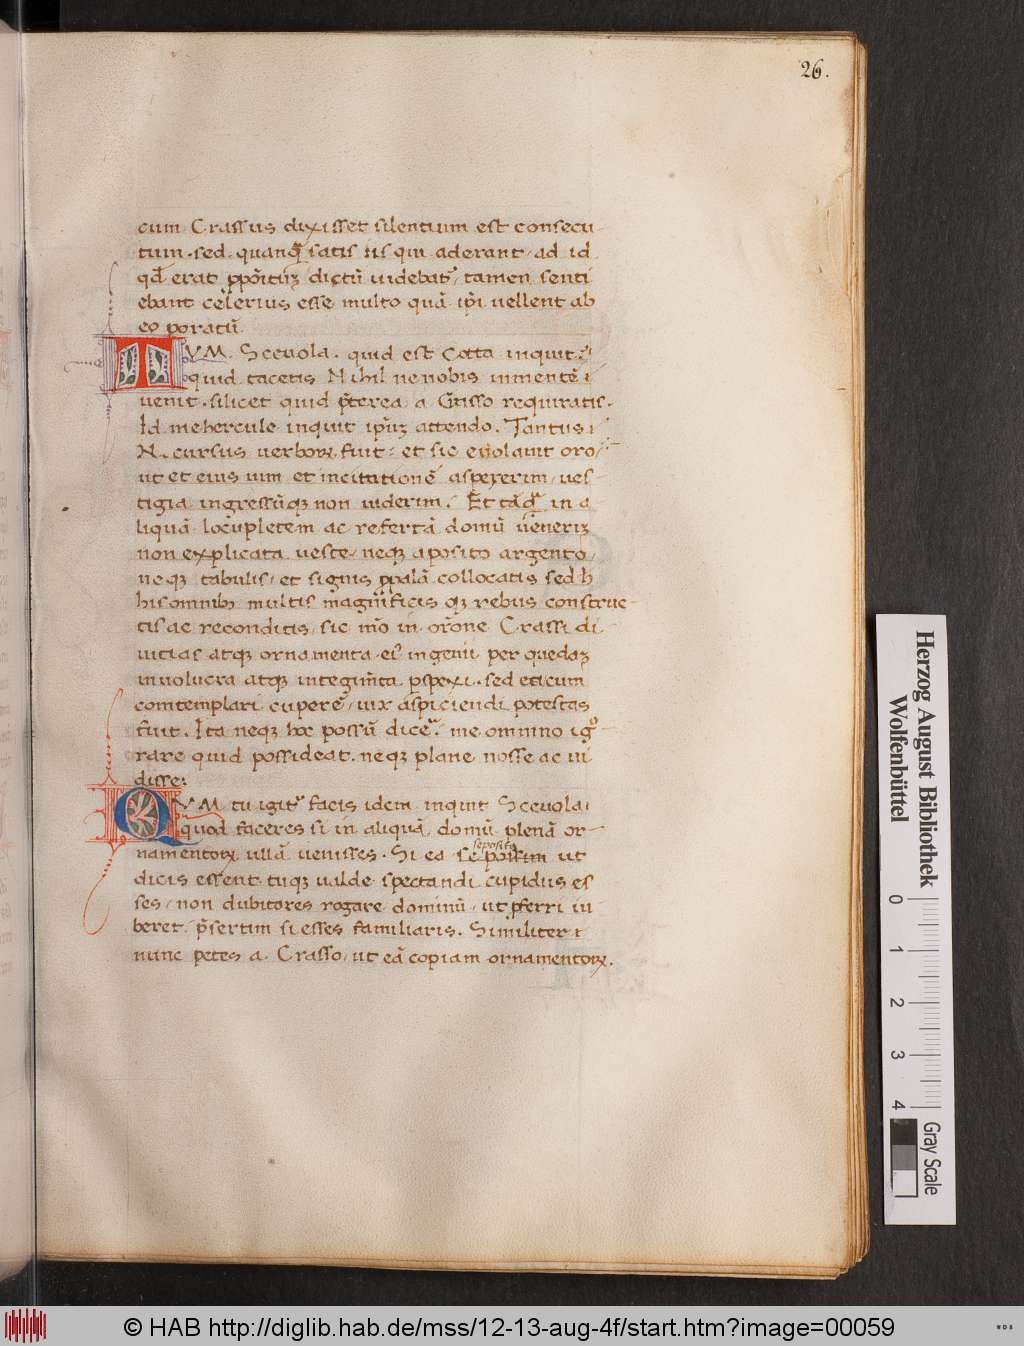 26.
cum Crassus dixisset silentium est consecu-
tum. sed quanq̃ satis iis qui aderant, ad id
qđ erat ꝓpõitũ dictũ uidebat᷑, tamen senti
ebant celerius esse multo quã ip̃i uellent ab
eo poratũ
TVM Sceuola. quid est Cotta inquit?
quid tacetis Nihil ne nobis in mentẽ
uenit. silicet quid p̃terea a Grasso requiratis.
Id mehercule inquit ip̃uꝫ attendo. Tantus
N. cursus uerboꝝ fuit: et sic euolauit oro/
ut et eius uim et incitationẽ aspexerim, ues-
tigia ingressũqꝫ non uiderim. Et tãq̃ in a
liquã locupletem ac refertã domũ ueneriꝫ
non explicata ueste, neqꝫ aposito argento,
neqꝫ tabulis, et signis ꝓpalã collocatis sed h
his omnibꝫ multis magnificis qꝫ rebus construc-
tis ac reconditis, sic mõ in orõne Crassi di
uitias atqꝫ ornamenta ei᷒ ingenii per quedaꝫ
inuolucra atqꝫ integum̃ta ꝑspexi. sed et cum
comtemplari cuperẽ, uix aspiciendi potestas
fuit. Ita neqꝫ hoc possũ dicẽ. me omnino ig-
rare quid possideat. neqꝫ plane nosse ac ui
disse:
QVM tu igit᷑ facis idem inquit Sceuola
quod faceres si in aliquã domũ plenã or-
namentoꝝ uillã uenisses. Si ea se possim ut
seposita
dicis essent tuqꝫ ualde spectandi cupidus es
ses, non dubitores rogare dominũ, ut ꝓferri iu
beret, p̃sertim si esses familiaris. Similiter
nunc petes a Crasso, ut eã copiam ornamentoꝝ.
Herzog August Bibliothek
Wolfenbüttel
0 1 2 3 4
Gray Scale
© HAB http://diglib.hab.de/mss/12-13-aug-4f/start.htm?image=00059